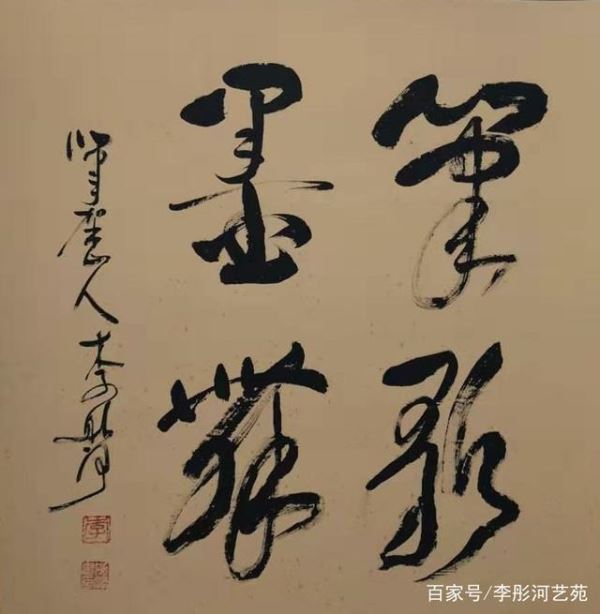 筆歌
墨舞
人李彤河
李
百家号/李彤河艺苑